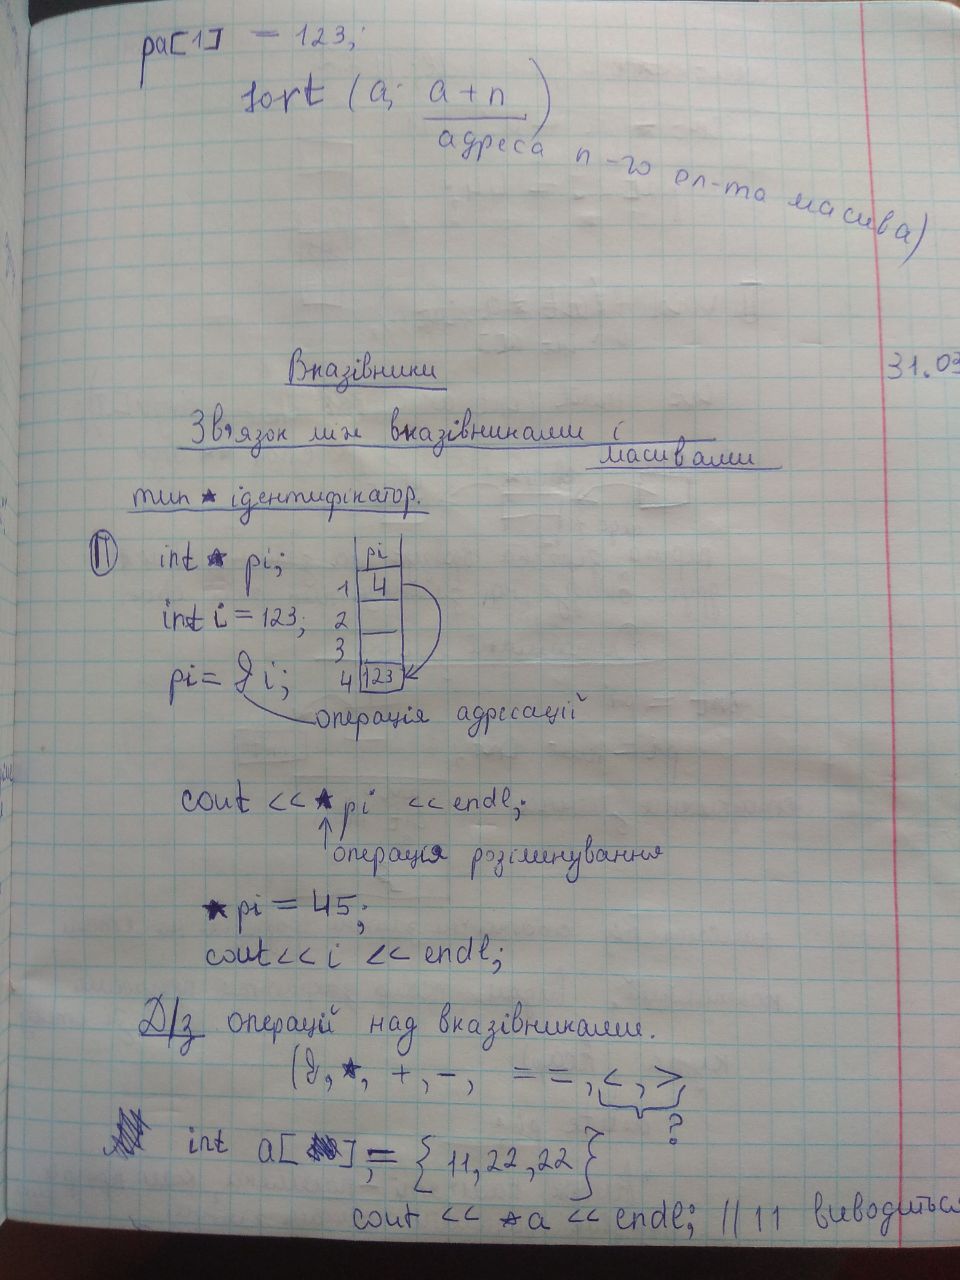 pa[1] = 123;
sort (a; a+n)
адреса n-го ел-та масива)
31.03
Вказівники
Зв'язок між вказівниками і
масивами
тип * ідентифікатор.
П int * pi;
int i = 123;
pi = & i;
pi
1 4
2
3
4 123
операція адресації
cout << * pi << endl;
операція розіменування
* pi = 45;
cout << i << endl;
Д/з операцій над вказівниками.
(&, *, +, -, ==, <, >,
?
int a[ ]; = {11, 22, 22}
cout << *a << endl; // 11 виводиться